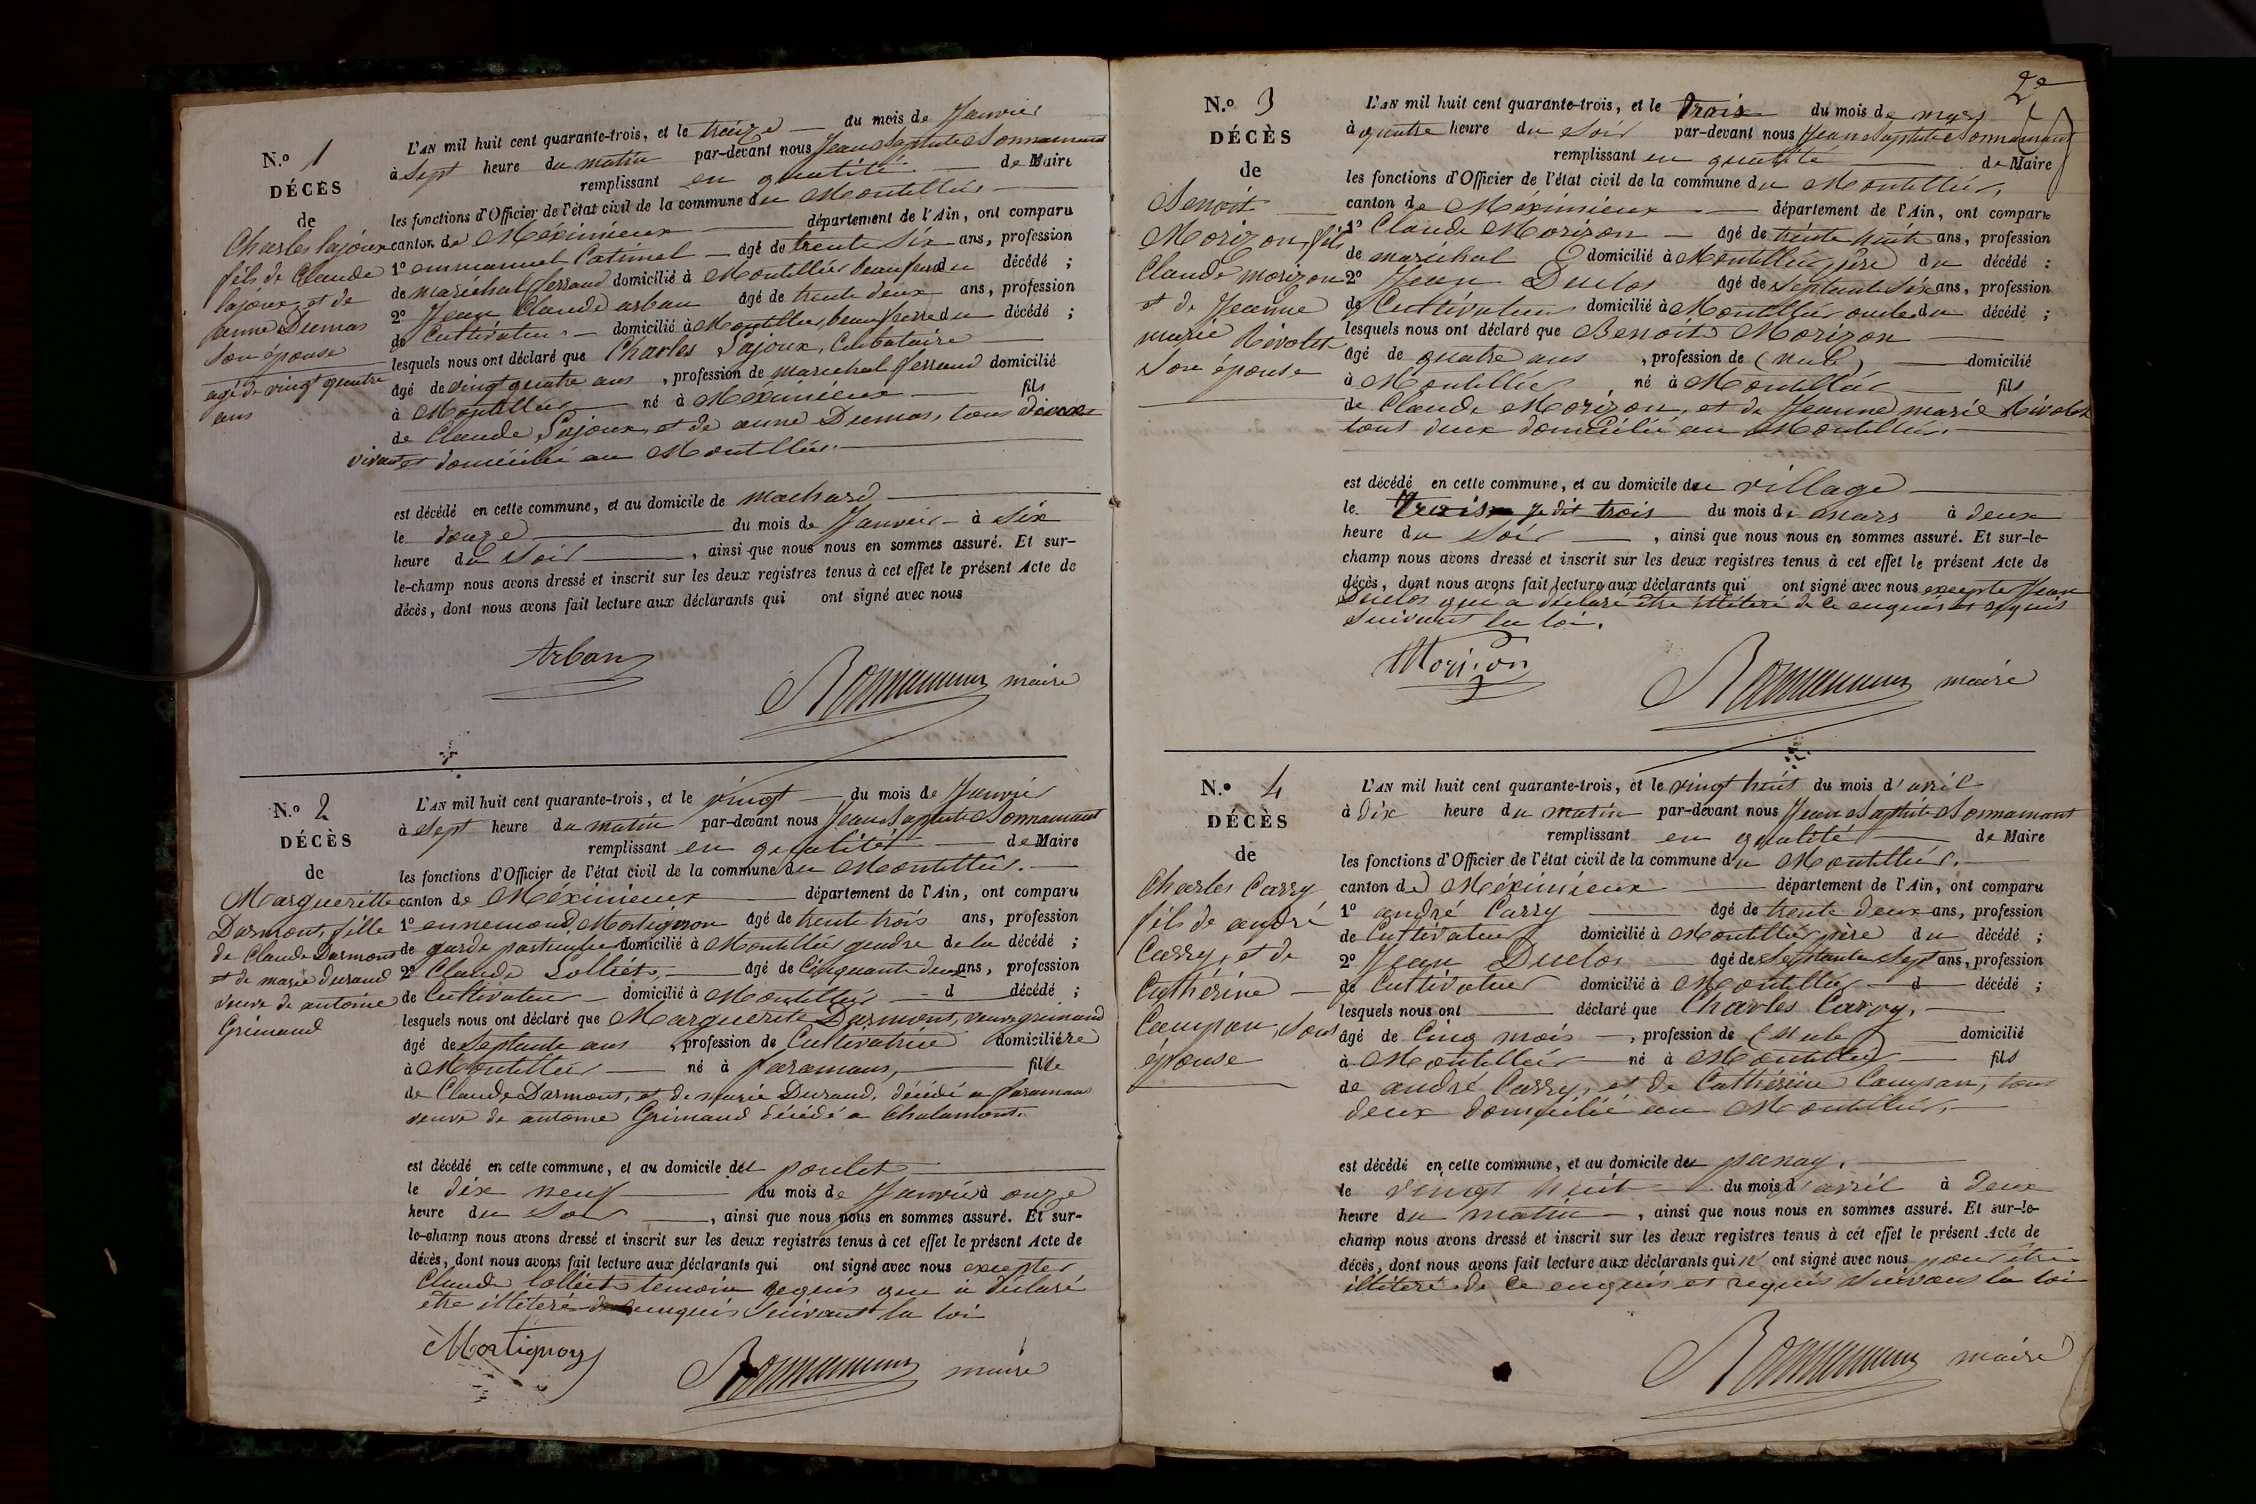 N.º 1
DÉCÈS
de
Charles Lajoux
fils de Claude
Lajoux, et de
anne Dumas
Son épouse
agé de vingt quatre
ans
L'AN mil huit cent quarante-trois, et le treize du mois de Janvier
à Sept heure du matin par-devant nous Jean Baptiste Bonnamant
remplissant en qualité de Maire
les fonctions d'Officier de l'état civil de la commune du Montellier
canton de Méximieux département de l'Ain, ont comparu
1º emmanuel Catimel âgé de trente Six ans, profession
de marechal ferrand domicilié à Montellier beaufrere du décédé ;
2º Jean Claude arban âgé de trente deux ans, profession
de Cultivateur domicilié à Montellier, beau frere du décédé ;
lesquels nous ont déclaré que Charles Lajoux, Celibataire
âgé de vingt quatre ans , profession de marechal ferrand domicilié
à Montellier né à Méximieux fils
de Claude Lajoux, et de anne Dumas, tous deux
vivant et domicilié au Montellier.
est décédé en cette commune, et au domicile de machard
le douze du mois de Janvier à Six
heure du Soir , ainsi que nous nous en sommes assuré. Et sur-
le-champ nous avons dressé et inscrit sur les deux registres tenus à cet effet le présent Acte de
décès, dont nous avons fait lecture aux déclarants qui ont signé avec nous
Arban
Bonnamant maire
N.º 2
DÉCÈS
de
Margueritte
Darmont, fille
de Claude Darmont
et de marie durand
veuve de antoine
Grimaud
L'AN mil huit cent quarante-trois, et le vingt du mois de Janvier
à Sept heure du matin par-devant nous Jean Baptiste Bonnamant
remplissant en qualité de Maire
les fonctions d'Officier de l'état civil de la commune du Montellier.
canton de Méximieux département de l'Ain, ont comparu
1º ennemond Mortignon âgé de trente trois ans, profession
de garde particulier domicilié à Montellier gendre de la décédé ;
2º Claude Colliet, âgé de Cinquante deux ans, profession
de Cultivateur domicilié à Montellier d décédé ;
lesquels nous ont déclaré que Marguerite Darmont, veuve grimaud
âgé de Septante ans , profession de Cultivatrice domiciliére
à Montellier né à faramans, fille
de Claude Darmont, et de marie Durand, décédé a faramans
veuve de antoine Grimaud décédé a Chalamont.
est décédé en cette commune, et au domicile del poulet
le dix neuf du mois de Janvier à onze
heure du Soir , ainsi que nous nous en sommes assuré. Et sur-
le-champ nous avons dressé et inscrit sur les deux registres tenus à cet effet le présent Acte de
décès, dont nous avons fait lecture aux déclarants qui ont signé avec nous excepter
Claude Colliet témoin requis que a déclaré
être illiteré enquis Suivant la loi
Mortignon
Bonnamant maire
2e
N.º 3
DÉCÈS
de
Benoit
Morizon, fils
Claude morizon
et de Jeanne
marie Rivolet
Son épouse
L'AN mil huit cent quarante-trois, et le trois du mois de mars
à quatre heure du Soir par-devant nous Jean Baptiste Bonnamant
remplissant en qualité de Maire
les fonctions d'Officier de l'état civil de la commune du Montellier,
canton de Méximieux département de l'Ain, ont comparu
1º Claude Morizon âgé de trente huit ans, profession
de maréchal domicilié à Montellier, père du décédé :
2º Jean Duclos âgé de Septante Six ans, profession
de Cultivateur domicilié à Montellier oncle du décédé ;
lesquels nous ont déclaré que Benoit Morizon
âgé de quatre ans , profession de (nul) domicilié
à Montellier , né à Montellier fils
de Claude Morizon, et de Jeanne marie Rivolet
tout deux domicilié au Montellier.
est décédé en cette commune, et au domicile du village
le trois je dit trois du mois de mars à deux
heure du Soir , ainsi que nous nous en sommes assuré. Et sur-le-
champ nous avons dressé et inscrit sur les deux registres tenus à cet effet le présent Acte de
décès, dont nous avons fait lecture aux déclarants qui ont signé avec nous excepté Jean
Duclos qui a déclaré être illiteré de ce enquis et requis
Suivant la loi.
Morizon
Bonnamant maire
N.º 4
DÉCÈS
de
Charles Carry
fils de andré
Carry, et de
Cathérine
Campan, Sous
épouse
L'AN mil huit cent quarante-trois, et le vingt huit du mois d'avril
à Dix heure du matin par-devant nous Jean Baptiste Bonnamant
remplissant en qualité de Maire
les fonctions d'Officier de l'état civil de la commune du Montellier.
canton de Méximieux département de l'Ain, ont comparu
1º andré Carry âgé de trente deux ans, profession
de Cultivateur domicilié à Montellier père du décédé ;
2º Jean Duclos âgé de Septante Sept ans, profession
de Cultivateur domicilié à Montellier d décédé ;
lesquels nous ont déclaré que Charles Carry,
âgé de Cinq mois , profession de (nul) domicilié
à Montellier né à Montellier fils
de andré Carry, et de Cathérine Campan, tous
deux domicilié au Montellier,
est décédé en cette commune, et au domicile de
le vingt huit du mois d'avril à deux
heure du matin , ainsi que nous nous en sommes assuré. Et sur-le-
champ nous avons dressé et inscrit sur les deux registres tenus à cet effet le présent Acte de
décès, dont nous avons fait lecture aux déclarants qui n' ont signé avec nous pour être
illiteré de ce enquis et requis Suivant la loi
Bonnamant maire